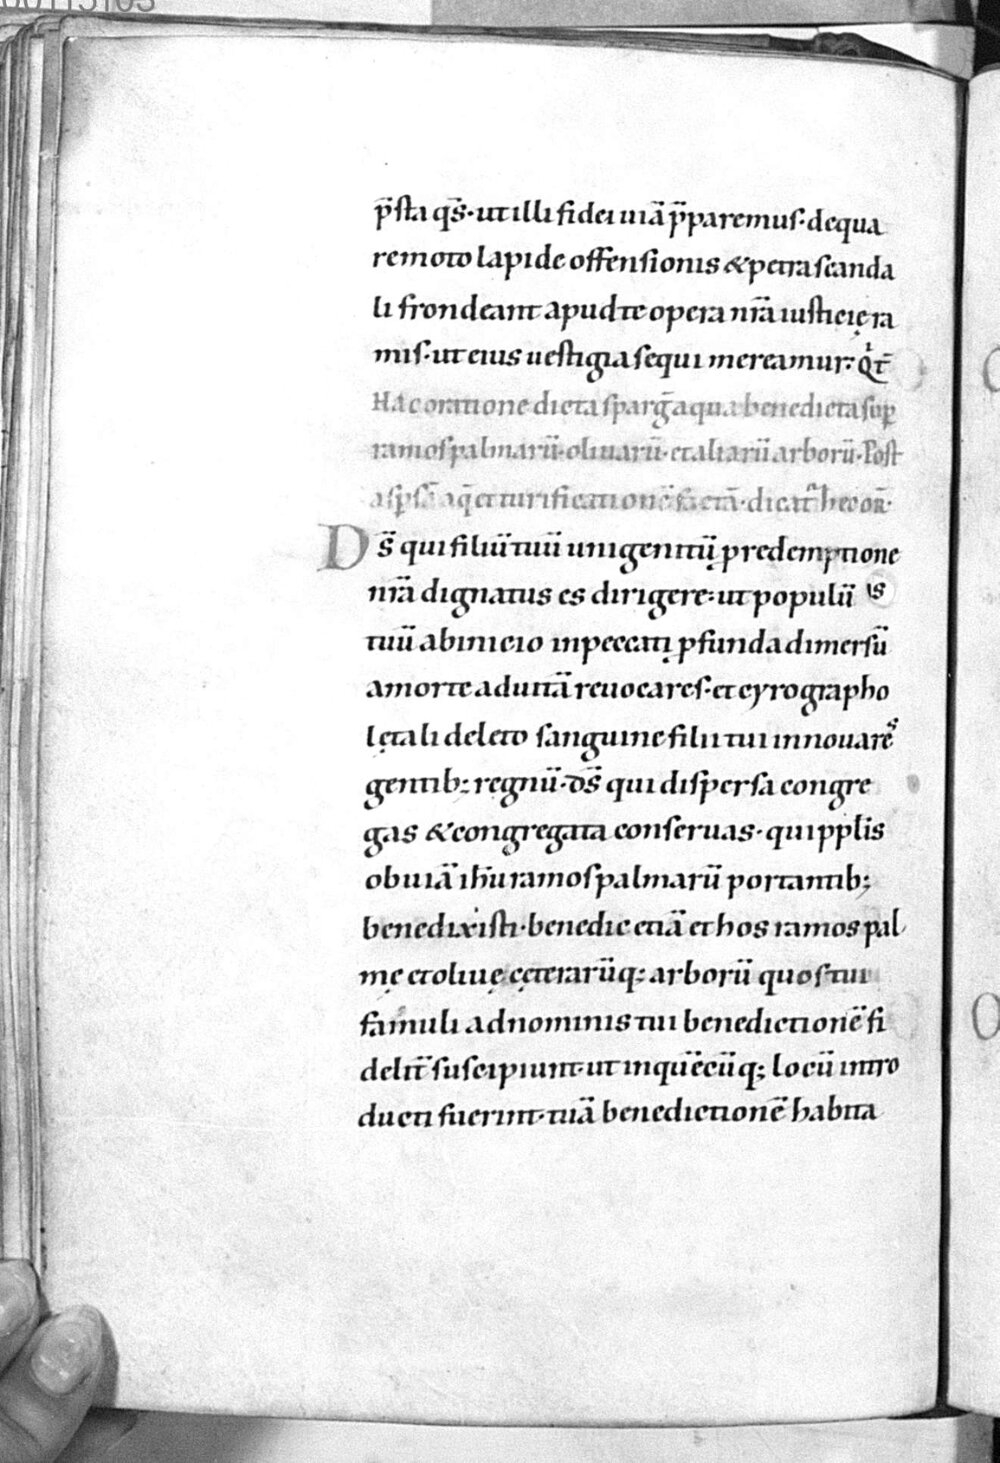 p̄sta qs̄· ut illi fidei uiā p̄paremus· de qua
remoto lapide offensionis & petra scanda
li frondeant apud te opera nr̄a iusticię ra
mis· ut eius uestigia sequi mereamur· Qͥ t̄
Hac oratione dicta sparḡ aqua benedicta sup̲
ramos palmarū· oliuarū· et aliarū arborū· Post
dicat̄ hec or̄·
Ds̄ qui filiū tuū unigenitū p redemptione
nr̄a dignatus es dirigere· ut populū
tuū ab inicio in peccati p̲funda dimersū
a morte ad uitā reuocares· et cyrographo
lętali deleto sanguine filii tui innouares
gentib; regnū· ds̄ qui dispersa congre
gas & congregata conseruas· qui pplis
obuiā ihū ramos palmarū portantib;
benedixisti· benedic etiā et hos ramos pal
mę et oliuę cęterarūq; arborū quos tui
famuli ad nominis tui benedictionē fi
delit̄ suscipiunt· ut in quēcūq; locū intro
ducti fuerint· tuā benedictionē habita